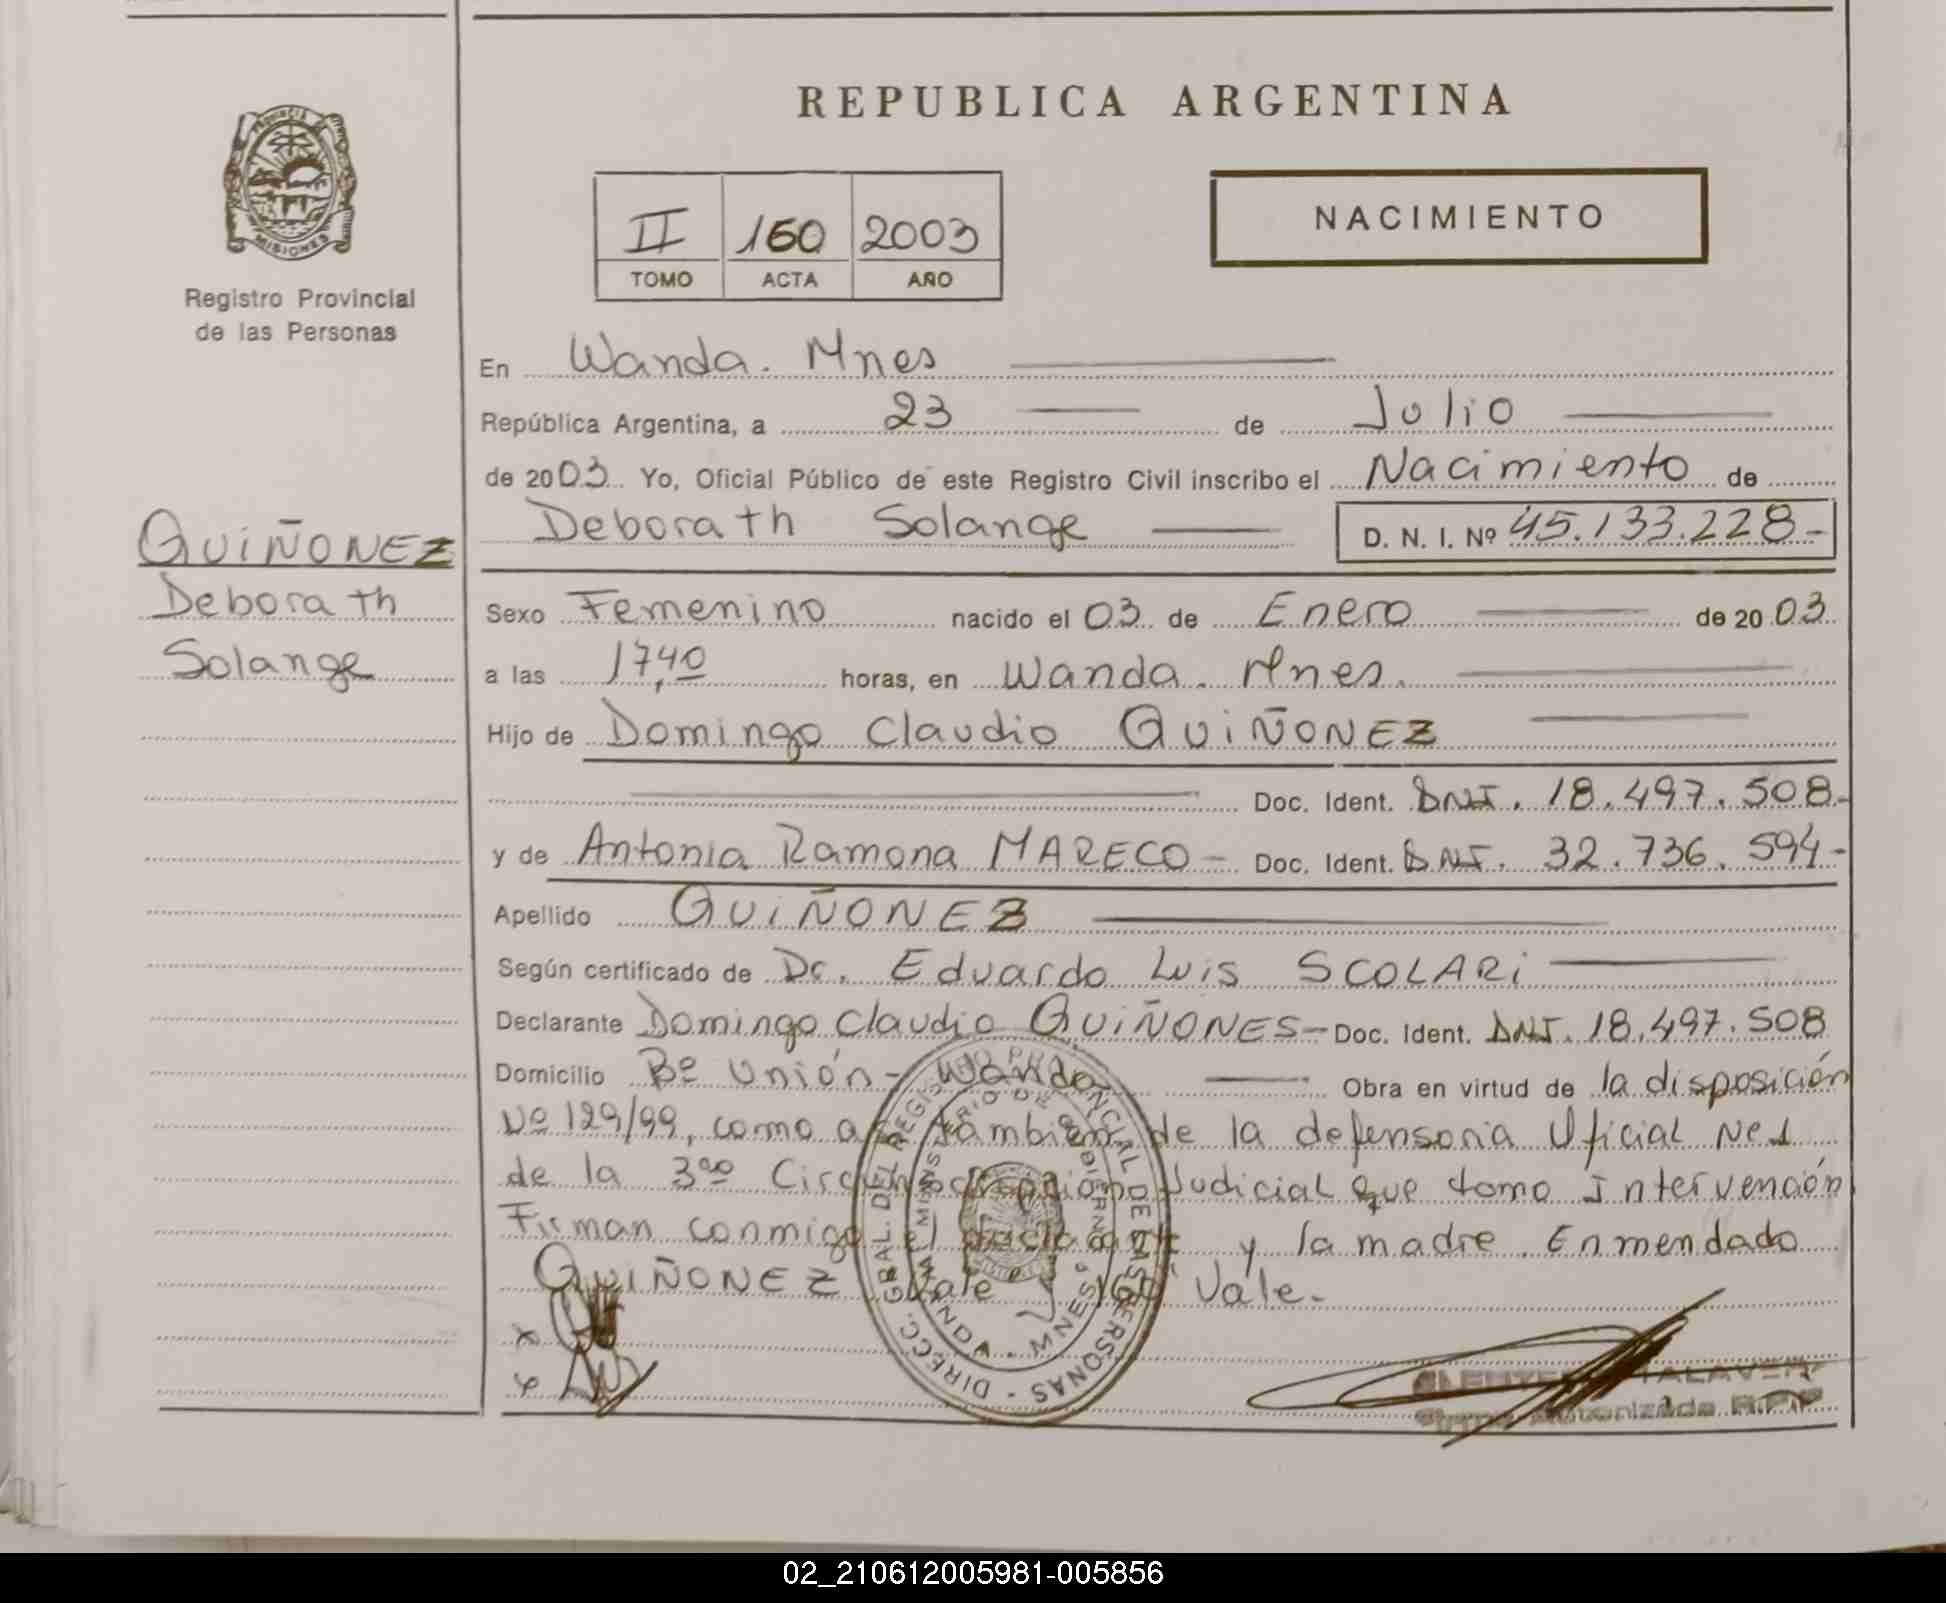 REPUBLICA ARGENTINA
PROVINCIA
MISIONES
Registro Provincial
de las Personas
II 160 2003
TOMO ACTA AÑO
NACIMIENTO
QUIÑONEZ
Deborath
Solange
En Wanda. Mnes
República Argentina, a 23 de Julio
de 2003 Yo, Oficial Público de este Registro Civil inscribo el Nacimiento de
Deborath Solange D. N. I. Nº 45.133.228-
Sexo Femenino nacido el 03 de Enero de 2003
a las 17,40 horas, en Wanda. Mnes.
Hijo de Domingo Claudio QUIÑONEZ
Doc. Ident. DNI. 18.497.508-
y de Antonia Ramona MARECO- Doc. Ident. DNI. 32.736.594-
Apellido QUIÑONEZ
Según certificado de Dr. Eduardo Luis SCOLARI
Declarante Domingo Claudio QUIÑONES- Doc. Ident. DNI. 18.497.508
Domicilio Bº Unión- Wanda- Obra en virtud de la disposición
Nº 129/99, como a también de la defensoria Oficial Nº1
de la 3ra Circunscripción Judicial que tomo Intervención
Firman conmigo el declarante y la madre. Enmendado
QUIÑONEZ Vale "160" Vale.
DIRECC. GRAL. DEL REGISTRO PROVINCIAL DE LAS PERSONAS
MINISTERIO DE GOBIERNO
WANDA - MNES
TALAVER
Firma Autorizada R.P.P
02_210612005981-005856